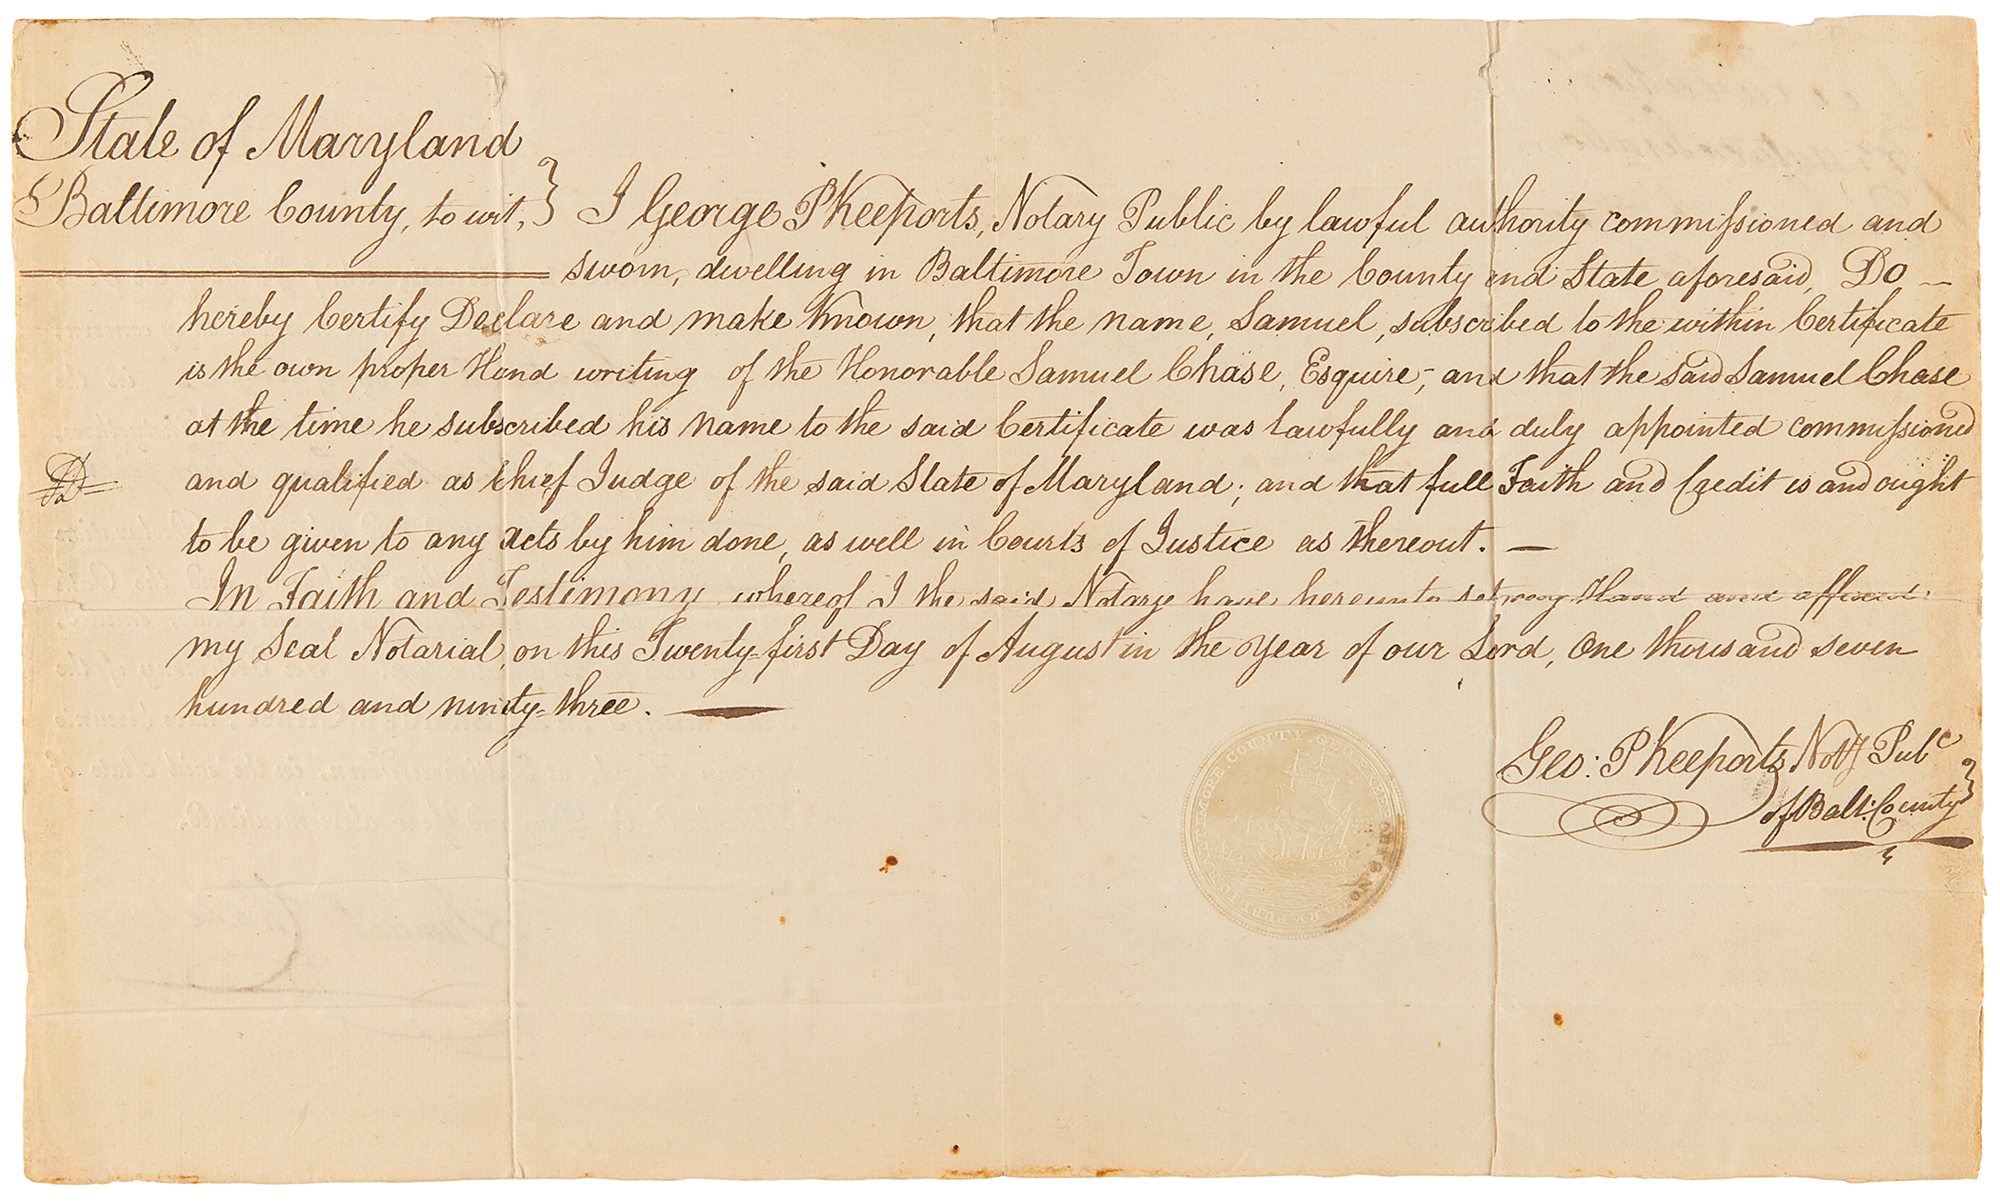 State of Maryland
Baltimore County, to wit, } I George P Keeports, Notary Public by lawful authority commissioned and
sworn, dwelling in Baltimore Town in the County and State aforesaid, Do —
hereby Certify Declare and make known, that the name, Samuel, subscribed to the within Certificate
is the own proper Hand writing of the Honorable Samuel Chase, Esquire, and that the said Samuel Chase
at the time he subscribed his name to the said Certificate was lawfully and duly appointed commissioned
and qualified as Chief Judge of the said State of Maryland; and that full Faith and Credit is and ought
to be given to any Acts by him done, as well in Courts of Justice as thereout. —
In Faith and Testimony whereof I the said Notary have hereunto set my Hand and affixed
my Seal Notarial, on this Twenty-first Day of August in the Year of our Lord, One thousand seven
hundred and ninety-three. —
Geo: P Keeports Noty Pubc
of Balt: County }